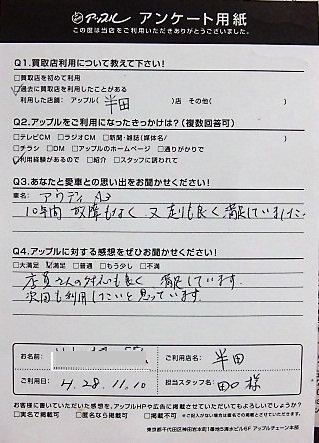 アップル アンケート用紙
この度は当店をご利用いただきありがとうございました。
Q1.買取店利用について教えて下さい!
□買取店を初めて利用
□過去に買取店を利用したことがある
利用した店舗: アップル( 半田 )店 その他( )
Q2.アップルをご利用になったきっかけは?(複数回答可)
□テレビCM □ラジオCM □新聞・雑誌(媒体名/ )
□チラシ □DM □アップルのホームページ □通りがかりで
□利用経験があるので □紹介 □スタッフに誘われて
Q3.あなたと愛車との思い出をお聞かせください!
車名: アウディ A3
10年間 故障もなく 又 走りも良く 満足していました
Q4.アップルに対する感想をぜひお聞かせください!
□大満足 □満足 □普通 □もう少し □不満
店員さんの対応も良く 満足しています.
次回も利用したいと思っています.
お名前:
ご利用店名: 半田
ご利用日: H.28.11.10
担当スタッフ名: 田口様
お客様に書いていただいた感想を、アップルHPや広告に掲載させていただいてもよろしいでしょうか?
□実名で掲載可 □匿名なら掲載可 □掲載不可
東京都千代田区神田岩本町1番地5清水ビル6F アップルチェーン本部